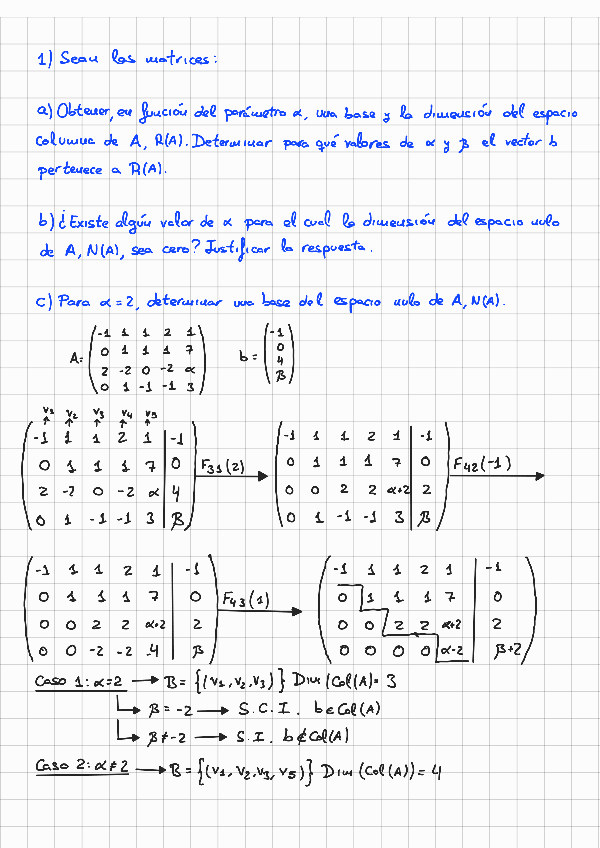 1) Sean las matrices:
a) Obtener, en función del parámetro α, una base y la dimensión del espacio
columna de A, R(A). Determinar para qué valores de α y β el vector b
pertenece a R(A).
b) ¿Existe algún valor de α para el cual la dimensión del espacio nulo
de A, N(A), sea cero? Justificar la respuesta.
c) Para α = 2, determinar una base del espacio nulo de A, N(A).
A = (-1 1 1 2 1 b = (-1
0 1 1 1 7 0
2 -2 0 -2 α 4
0 1 -1 -1 3) β)
v1 v2 v3 v4 v5
↑ ↑ ↑ ↑ ↑
(-1 1 1 2 1 | -1 (-1 1 1 2 1 | -1
0 1 1 1 7 | 0 F31(2) → 0 1 1 1 7 | 0 F42(-1) →
2 -2 0 -2 α | 4 0 0 2 2 α+2 | 2
0 1 -1 -1 3 | β) 0 1 -1 -1 3 | β)
(-1 1 1 2 1 | -1 (-1 1 1 2 1 | -1
0 1 1 1 7 | 0 F43(1) → 0 1 1 1 7 | 0
0 0 2 2 α+2 | 2 0 0 2 2 α+2 | 2
0 0 -2 -2 -4 | β) 0 0 0 0 α-2 | β+2)
Caso 1: α=2 → B = {(v1, v2, v3)} Dim (Col(A) = 3
β = -2 → S.C.I. b∈Col(A)
β ≠ -2 → S.I. b∉Col(A)
Caso 2: α≠2 → B = {(v1, v2, v3, v5)} Dim (Col(A)) = 4